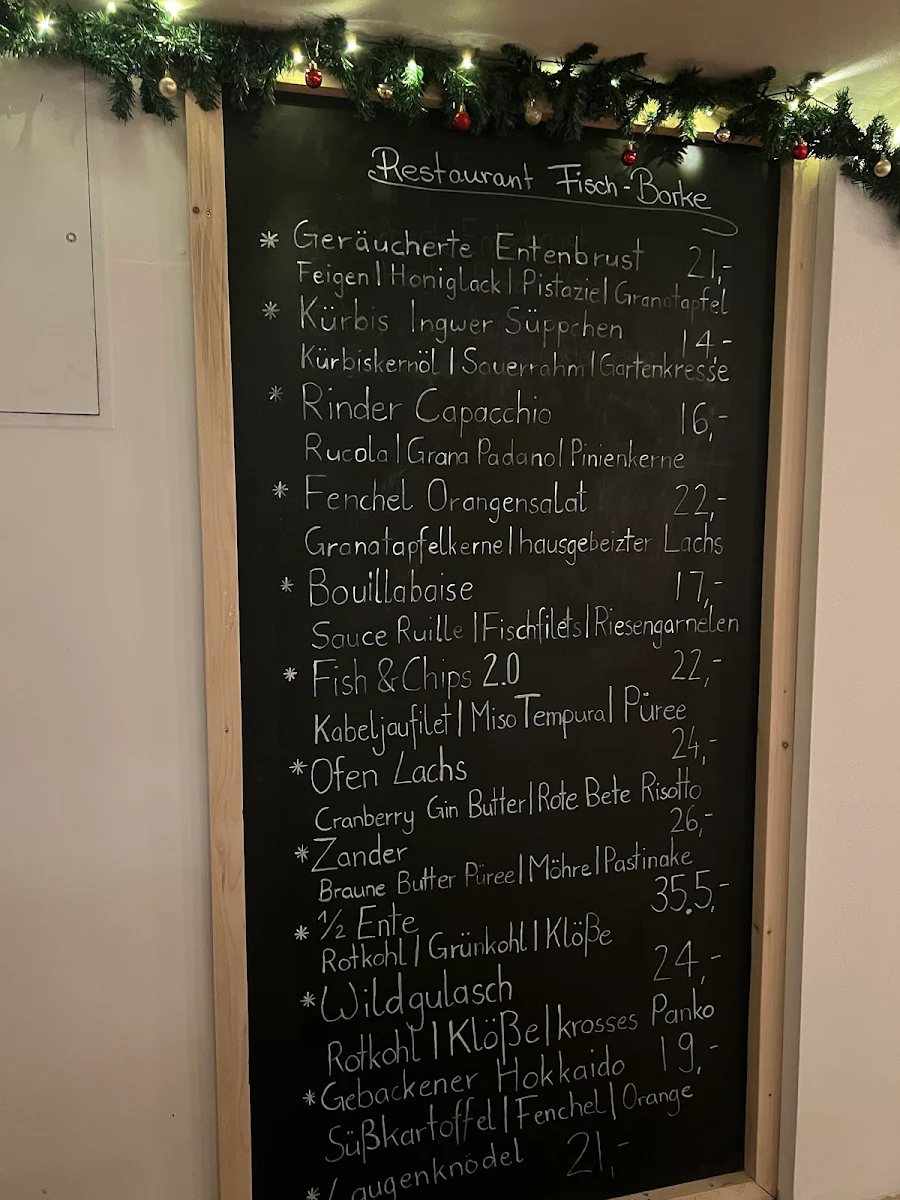 Restaurant Fisch-Borke
* Geräucherte Entenbrust 21,-
Feigen | Honiglack | Pistazie | Granatapfel
* Kürbis Ingwer Süppchen 14,-
Kürbiskernöl | Sauerrahm | Gartenkresse
* Rinder Capacchio 16,-
Rucola | Grana Padano | Pinienkerne
* Fenchel Orangensalat 22,-
Granatapfelkerne | hausgebeizter Lachs
* Bouillabaise 17,-
Sauce Ruille | Fischfilets | Riesengarnelen
* Fish & Chips 2.0 22,-
Kabeljaufilet | Miso Tempura | Püree
* Ofen Lachs 24,-
Cranberry Gin Butter | Rote Bete Risotto
* Zander 26,-
Braune Butter Püree | Möhre | Pastinake
* 1/2 Ente 35.5,-
Rotkohl | Grünkohl | Klöße
* Wildgulasch 24,-
Rotkohl | Klöße | krosses Panko
* Gebackener Hokkaido 19,-
Süßkartoffel | Fenchel | Orange
* Laugenknödel 21,-